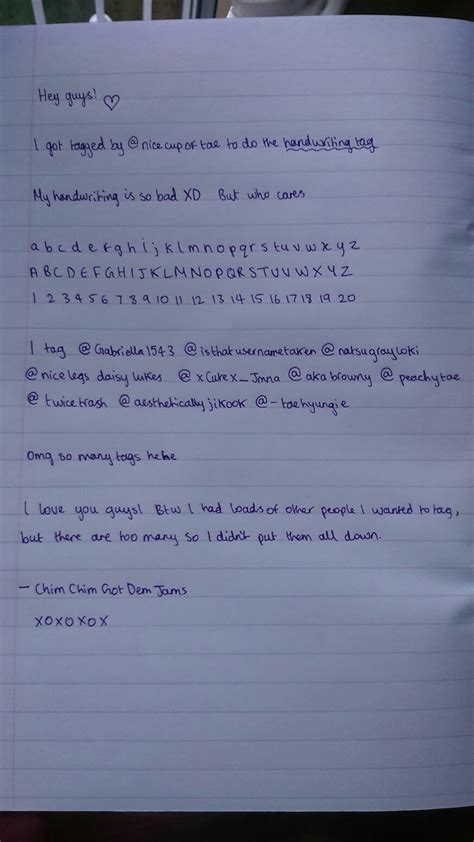 Hey guys! ♡
I got tagged by @nicecupoftae to do the handwriting tag
My handwriting is so bad XD But who cares
a b c d e f g h i j k l m n o p q r s t u v w x y z
A B C D E F G H I J K L M N O P Q R S T U V W X Y Z
1 2 3 4 5 6 7 8 9 10 11 12 13 14 15 16 17 18 19 20
I tag @Gabriella1543 @isthatusernametaken @natsugrayloki
@nicelegsdaisylukes @xCutex_Jmna @akabrowny @peachytae
@twicetrash @aestheticallyjikook @-taehyungie
Omg so many tags hehe
I love you guys! Btw I had loads of other people I wanted to tag,
but there are too many so I didn't put them all down.
- Chim Chim Got Dem Jams
XOXOXOX